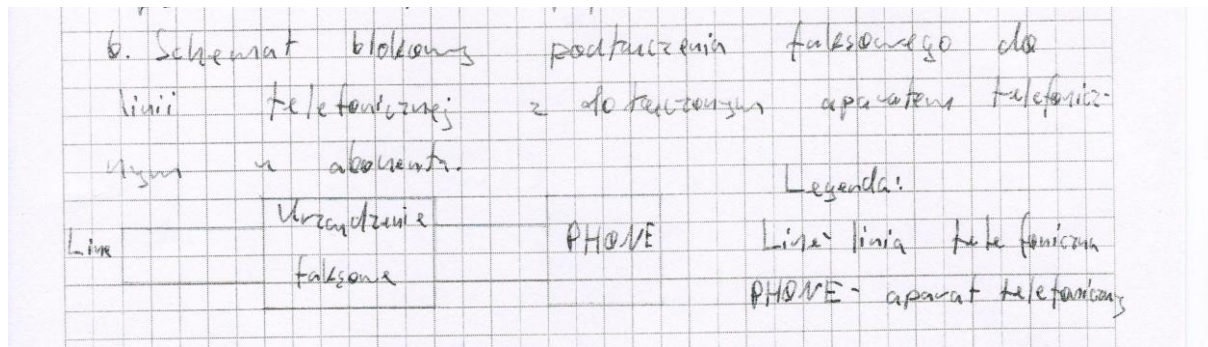 6. Schemat blokowy podłączenia faksowego do
linii telefonicznej z dołączonym aparatem telefonicz-
nym u abonenta.
Legenda:
Line Urządzenie faksowe PHONE
Line - linia telefoniczna
PHONE - aparat telefoniczny